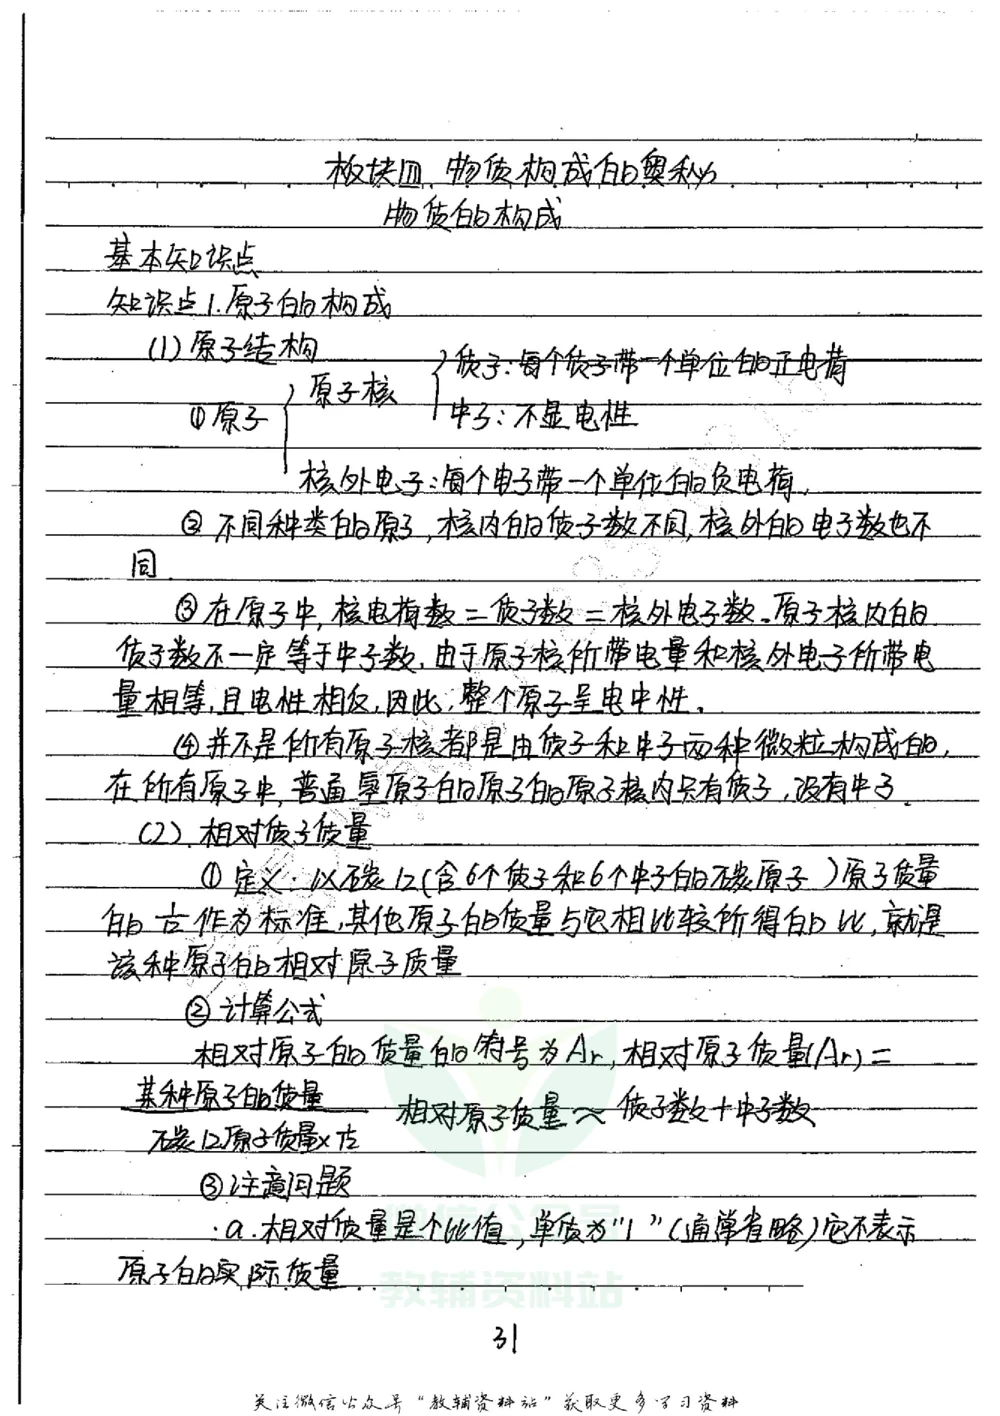 板块四 物质构成的奥秘
物质的构成
基本知识点
知识点1.原子的构成
(1)原子结构
质子:每个质子带一个单位的正电荷
①原子 原子核
中子:不显电性
核外电子:每个电子带一个单位的负电荷.
②不同种类的原子,核内的质子数不同,核外的电子数也不
同.
③在原子中,核电荷数=质子数=核外电子数。原子核内的
质子数不一定等于中子数,由于原子核所带电量和核外电子所带电
量相等,且电性相反,因此,整个原子呈电中性。
④并不是所有原子核都是由质子和中子两种微粒构成的,
在所有原子中,普通氢原子的原子的原子核内只有质子,没有中子.
(2).相对质子质量
①定义:以碳12(含6个质子和6个中子的碳原子)原子质量
的 作为标准,其他原子的质量与它相比较所得的比,就是
该种原子的相对原子质量
②计算公式
相对原子的质量的符号为Ar,相对原子质量(Ar)=
某种原子的质量
碳12原子质量×
相对原子质量≈质子数+中子数
③注意问题
a.相对质量是个比值,单质为"1"(通常省略)它不表示
原子的实际质量
微信公众号
教辅资料站
31
关注微信公众号"教辅资料站"获取更多学习资料